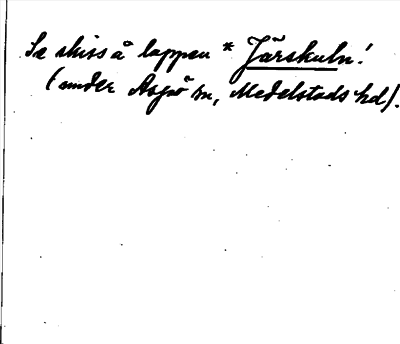 Se skiss å lappen * Järskuln!
(under Aspö sn, Medelstads hd).